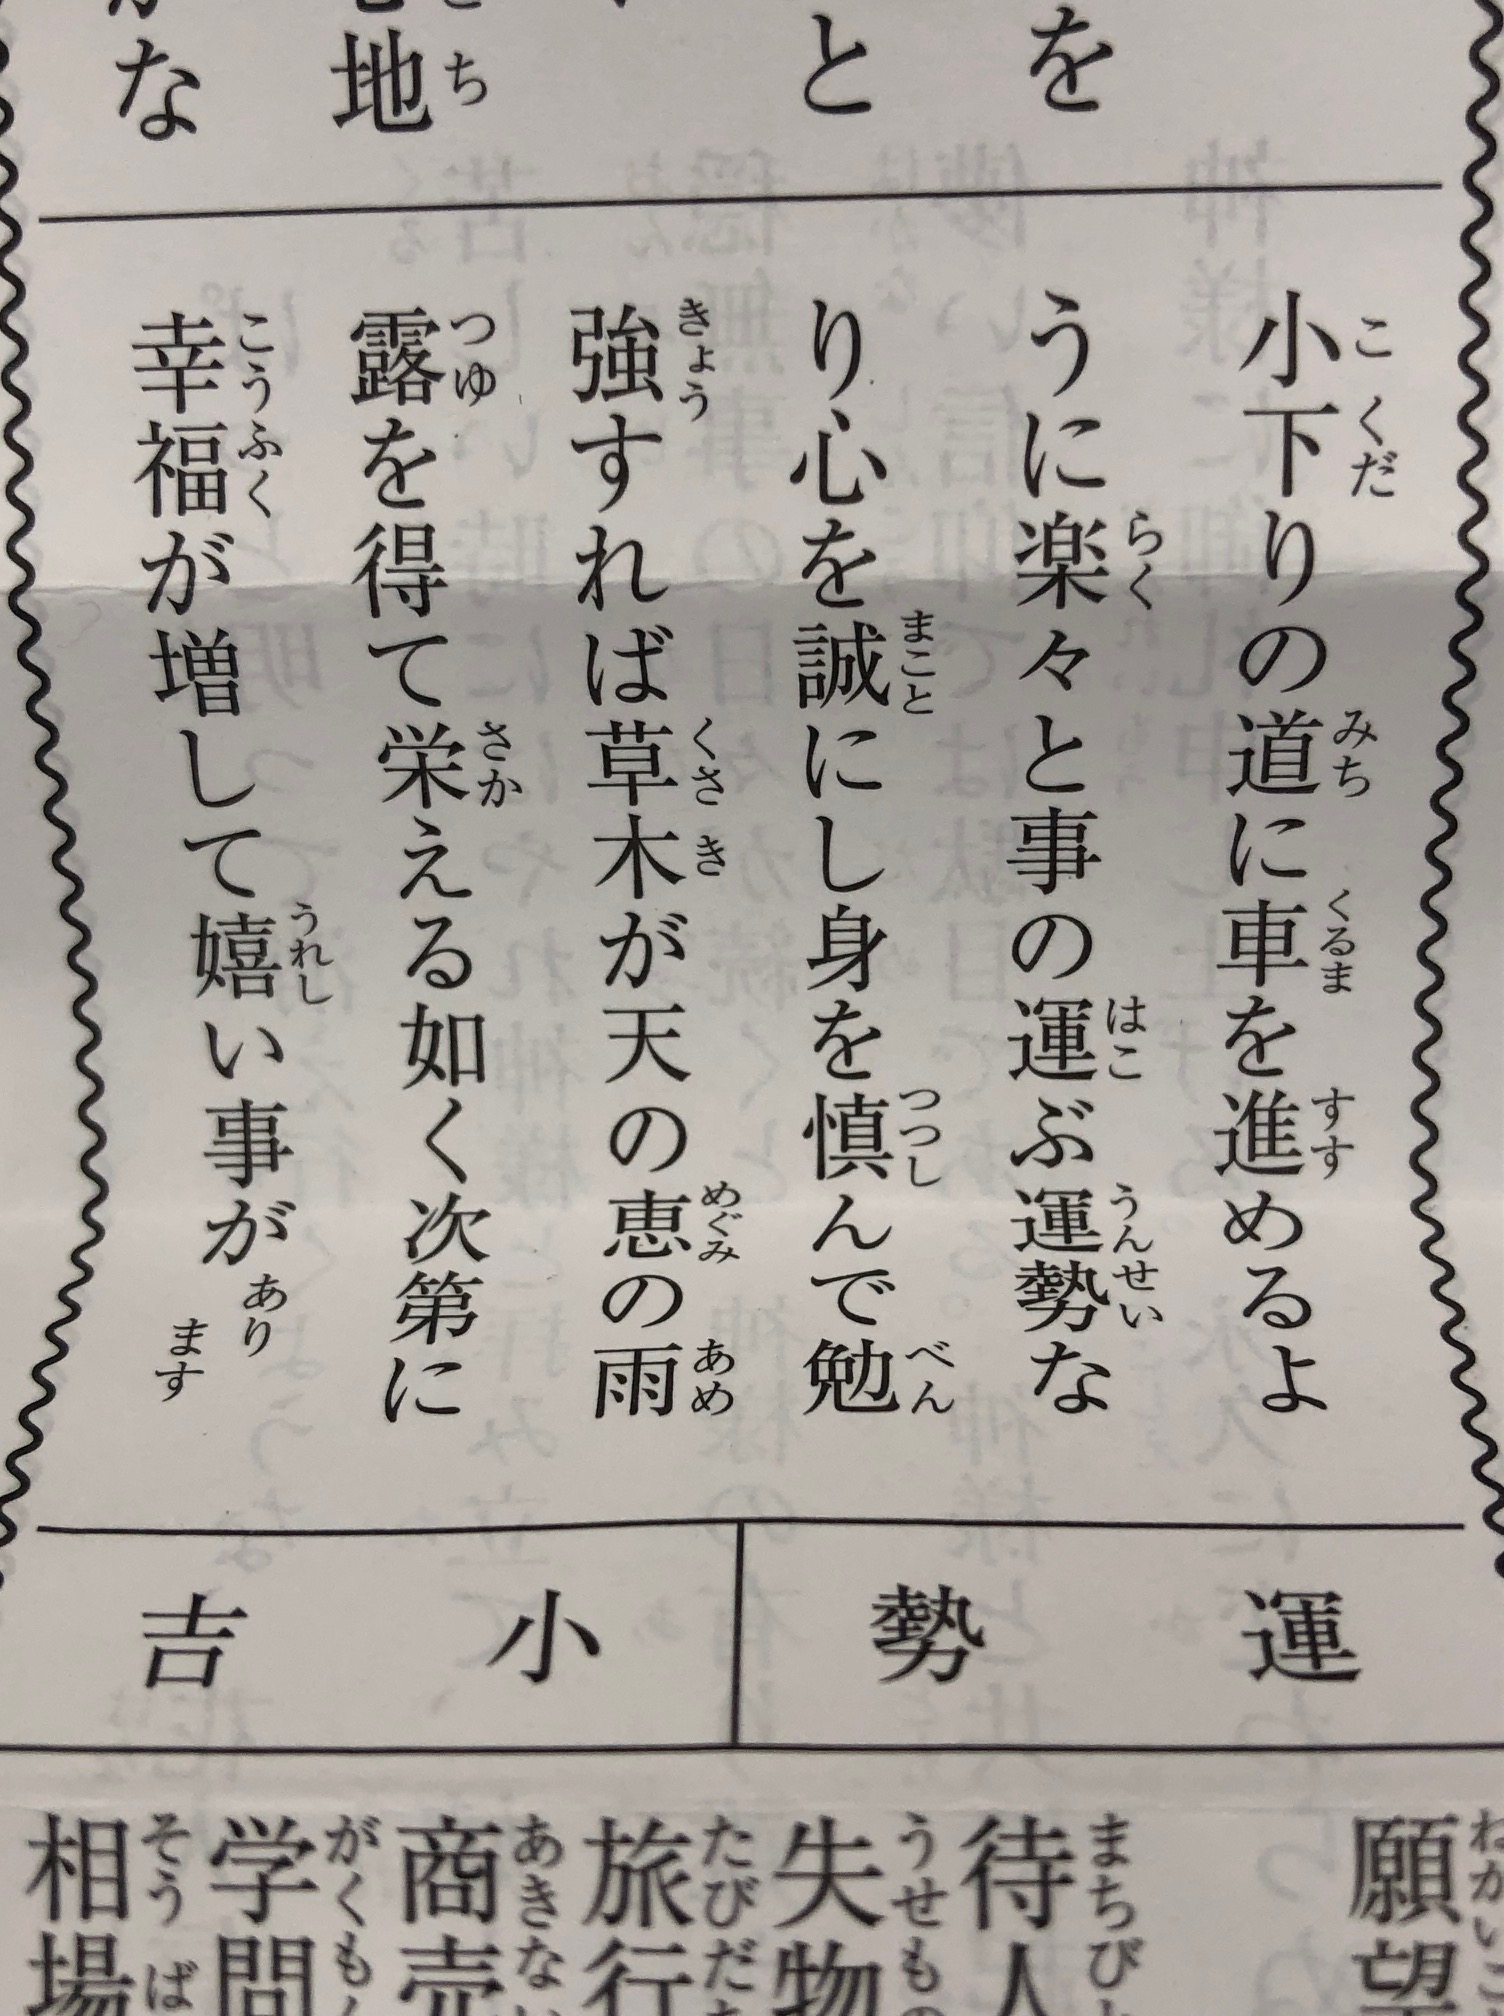 を
と
地
な
小下りの道に車を進めるよ
うに楽々と事の運ぶ運勢な
り心を誠にし身を慎んで勉
強すれば草木が天の恵の雨
露を得て栄える如く次第に
幸福が増して嬉い事があります
運勢
小吉
願望
待人
失物
旅行
商売
学問
相場